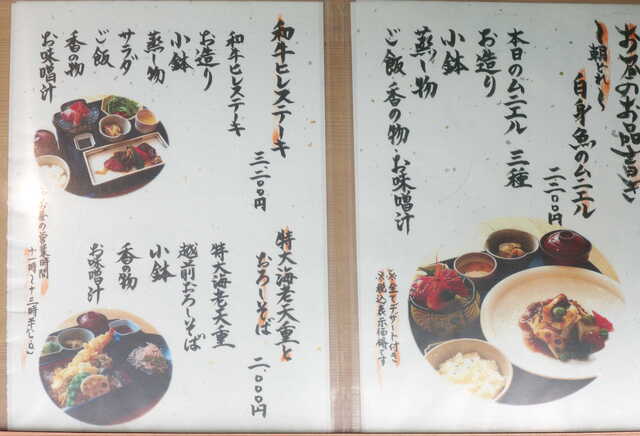 お昼のお品書き
〜朝どれ〜
白身魚のムニエル
二二〇〇円
本日のムニエル 三種
お造り
小鉢
蒸し物
ご飯 香の物 お味噌汁
※全てデザート付き
※税込表示価格です
和牛ヒレステーキ
三二〇〇円
和牛ヒレステーキ
お造り
小鉢
蒸し物
サラダ
ご飯
香の物
お味噌汁
特大海老天重と
おろしそば
二〇〇〇円
特大海老天重
越前おろしそば
小鉢
香の物
お味噌汁
お昼の営業時間
十一時〜十三時半